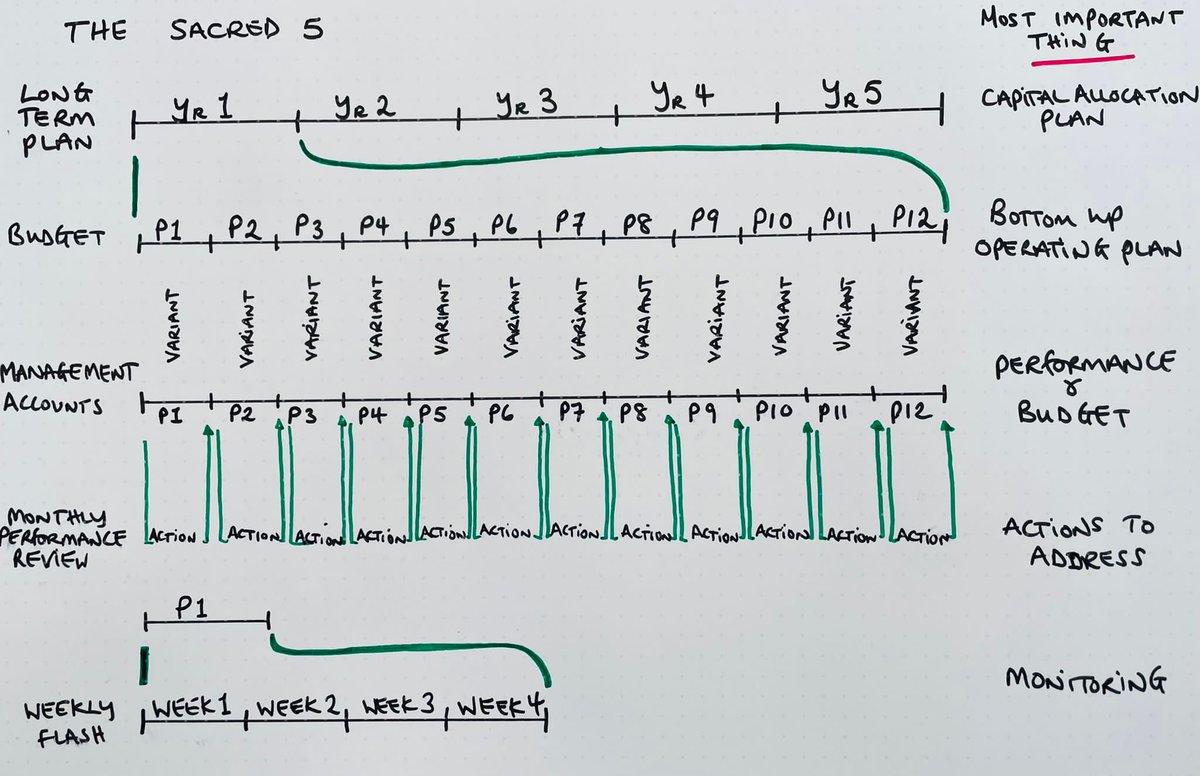 THE SACRED 5
MOST IMPORTANT
THING
LONG
TERM
PLAN
YR 1 YR 2 YR 3 YR 4 YR 5
CAPITAL ALLOCATION
PLAN
BUDGET
P1 P2 P3 P4 P5 P6 P7 P8 P9 P10 P11 P12
BOTTOM UP
OPERATING PLAN
VARIANT VARIANT VARIANT VARIANT VARIANT VARIANT VARIANT VARIANT VARIANT VARIANT VARIANT VARIANT
MANAGEMENT
ACCOUNTS
P1 P2 P3 P4 P5 P6 P7 P8 P9 P10 P11 P12
PERFORMANCE
BUDGET
MONTHLY
PERFORMANCE
REVIEW
ACTION ACTION ACTION ACTION ACTION ACTION ACTION ACTION ACTION ACTION ACTION ACTION
ACTIONS TO
ADDRESS
P1
WEEKLY
FLASH
WEEK 1 WEEK 2 WEEK 3 WEEK 4
MONITORING